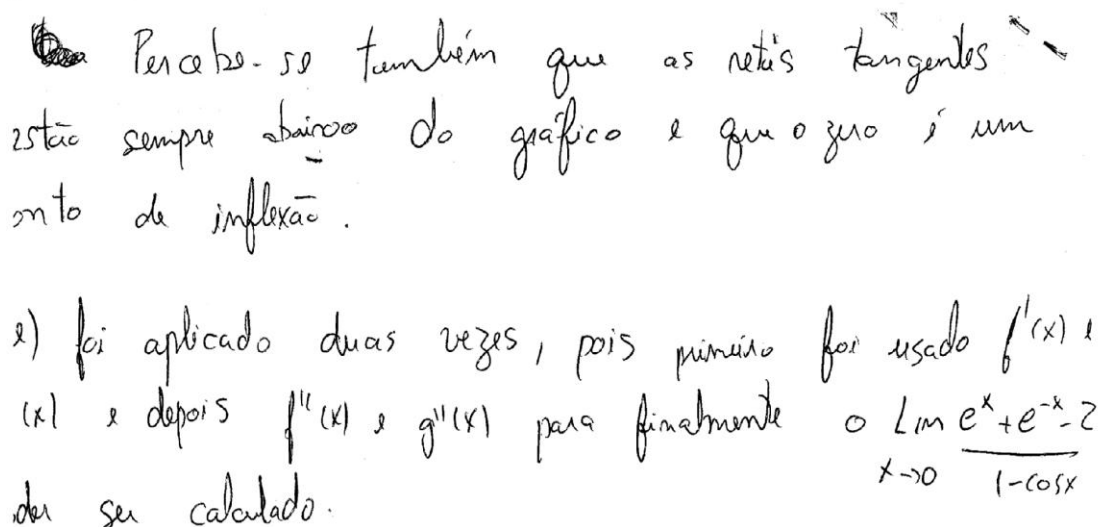 Percebe-se também que as retas tangentes
estão sempre abaixo do gráfico e que o zero é um
onto de inflexão.
e) foi aplicado duas vezes, pois primeiro foi usado f'(x) e
(x) e depois f''(x) e g''(x) para finalmente o Lim x->0 (e^x + e^-x - 2)/(1-cosx)
der ser calculado.